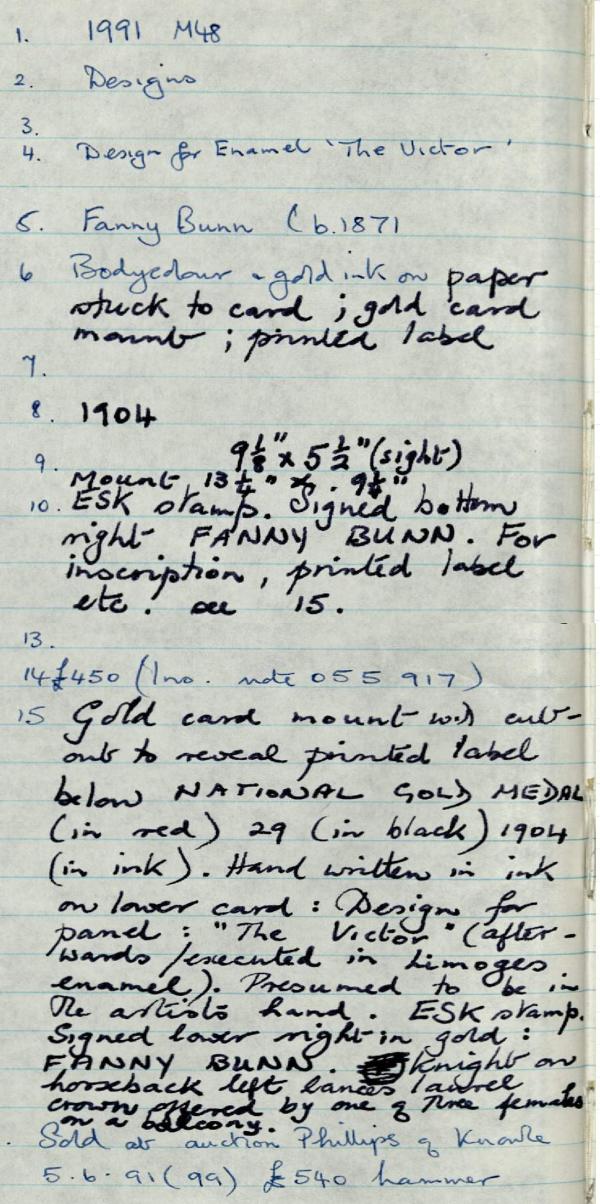 1. 1991 M48
2. Designs
3.
4. Design for Enamel 'The Victor'
5. Fanny Bunn (b.1871
6 Bodycolour & gold ink on paper
stuck to card ; gold card
mount ; printed label
7.
8. 1904
9 1/8" x 5 1/2" (sight)
9. Mount 13 1/4" x 9 1/8"
10. ESK stamp. Signed bottom
right FANNY BUNN. For
inscription, printed label
etc. see 15.
13.
14 £450 (Inv. note 055 917)
15 Gold card mount with cut-
out to reveal printed label
below NATIONAL GOLD MEDAL
(in red) 29 (in black) 1904
(in ink). Hand written in ink
on lower card : Design for
panel : "The Victor" (after-
wards /executed in Limoges
enamel). Presumed to be in
the artists hand. ESK stamp.
Signed lower right in gold :
FANNY BUNN. Knight on
horseback left lances laurel
crown offered by one of three females
on a balcony.
Sold at auction Phillips of Knowle
5.6.91 (99) £540 hammer